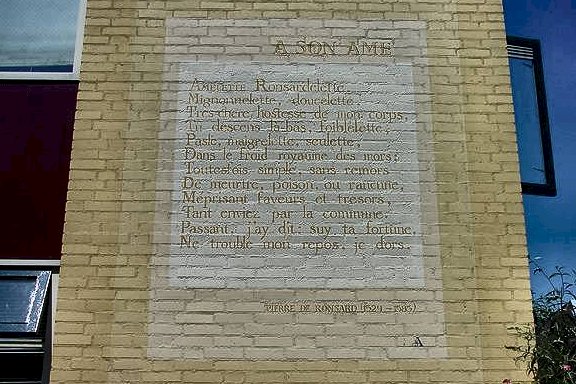 A SON AME
Amelette Ronsardelette,
Mignonnelette, doucelette
Tres-chere hostesse de mon corps,
Tu descens là-bas, foiblelette,
Pasle, maigrelette, seulette,
Dans le froid royaume des mors:
Toutesfois simple, sans remors
De meurtre, poison, ou rancune,
Méprisant faveurs et tresors,
Tant enviez par la commune.
Passant, j'ay dit: suy ta fortune
Ne trouble mon repos, je dors.
PIERRE DE RONSARD (1524-1585)
A